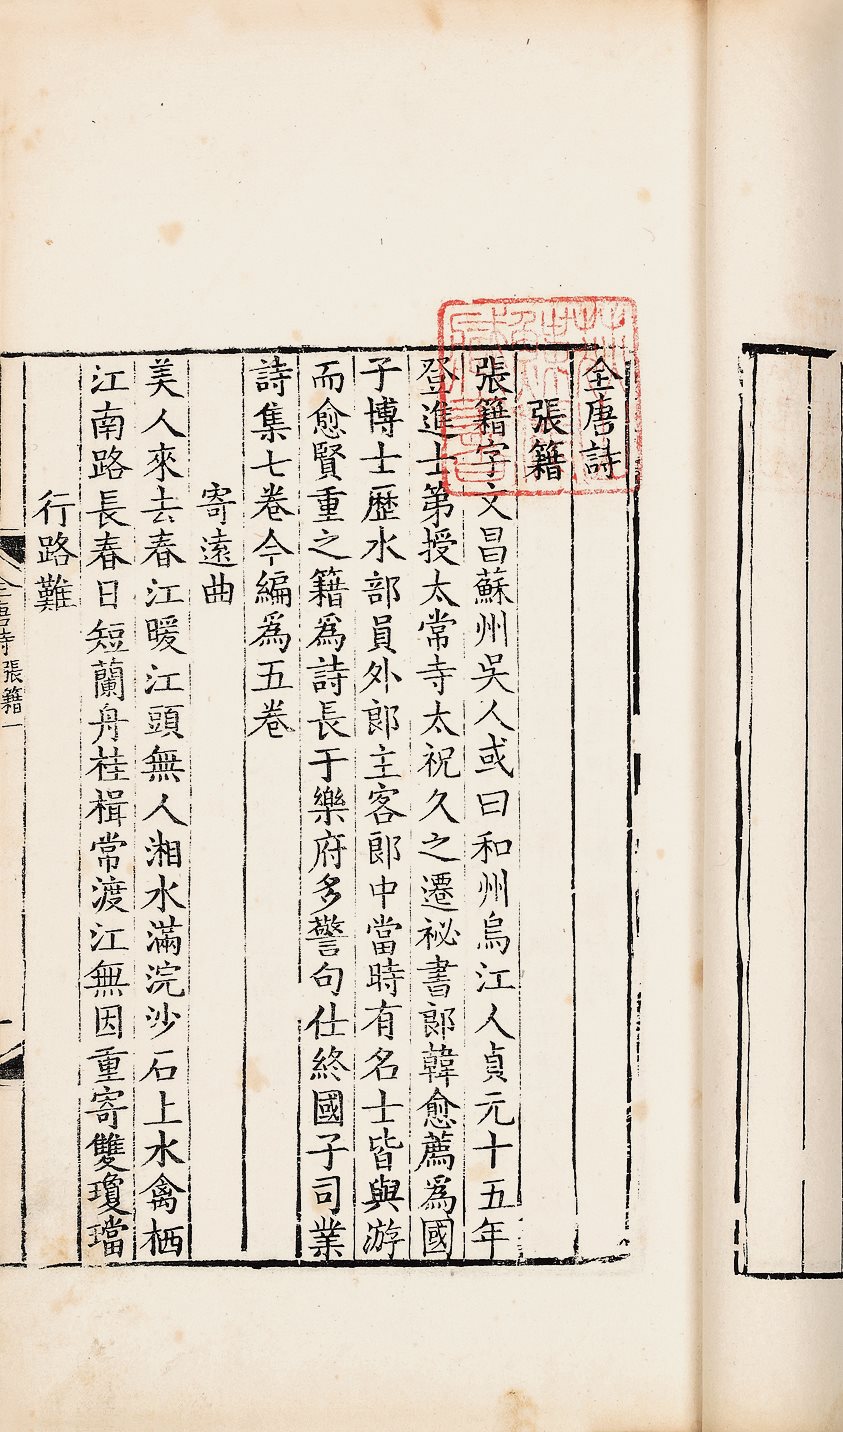 全唐詩
張籍
張籍字文昌蘇州吳人或曰和州烏江人貞元十五年
登進士第授太常寺太祝久之遷祕書郎韓愈薦爲國
子博士歷水部員外郎主客郎中當時有名士皆與游
而愈賢重之籍爲詩長于樂府多警句仕終國子司業
詩集七卷今編爲五卷
寄遠曲
美人來去春江暖江頭無人湘水滿浣沙石上水禽栖
江南路長春日短蘭舟桂楫常渡江無因重寄雙瓊璫
行路難
全唐詩 張籍一